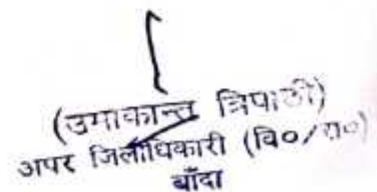 (उमाकान्त त्रिपाठी)
अपर जिलाधिकारी (वि०/रा०)
बाँदा